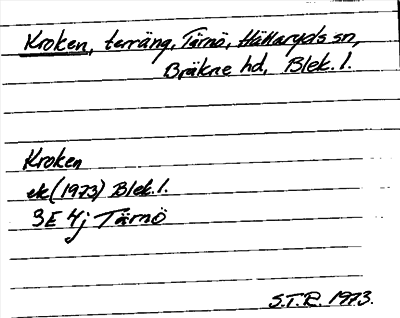 Kroken, terräng, Tärnö, Hällaryds sn,
Bräkne hd, Blek. l.
Kroken
ek (1973) Blek. l.
3E 4j Tärnö
S.T.R. 1973.